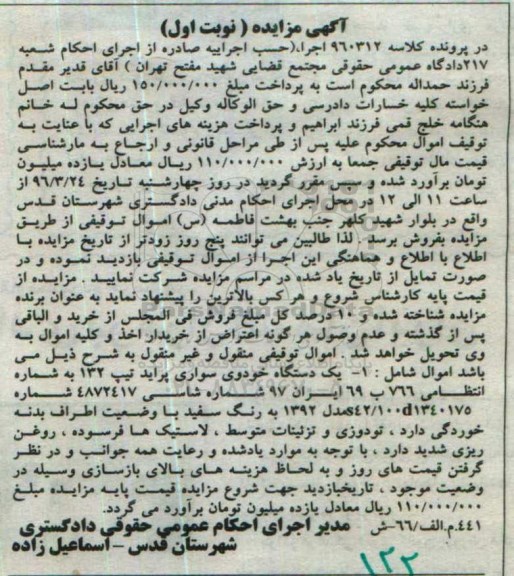 آگهی مزایده ( نوبت اول)
در پرونده کلاسه ۹۶۰۳۱۲ اجرا،(حسب اجراییه صادره از اجرای احکام شعبه
۲۱۷دادگاه عمومی حقوقی مجتمع قضایی شهید مفتح تهران ) آقای قدیر مقدم
فرزند حمداله محکوم است به پرداخت مبلغ ۱۵۰/۰۰۰/۰۰۰ ریال بابت اصل
خواسته کلیه خسارات دادرسی و حق الوکاله وکیل در حق محکوم له خانم
هنگامه خلج قمی فرزند ابراهیم و پرداخت هزینه های اجرایی که با عنایت به
توقیف اموال محکوم علیه پس از طی مراحل قانونی و ارجاع به مارشناسی
قیمت مال توقیفی جمعا به ارزش ۱۱۰/۰۰۰/۰۰۰ ریال معادل یازده میلیون
تومان برآورد شده و سپس مقرر گردید در روز چهارشنبه تاریخ ۹۶/۳/۲۴ از
ساعت ۱۱ الی ۱۲ در محل اجرای احکام مدنی دادگستری شهرستان قدس
واقع در بلوار شهید کلهر جنب بهشت فاطمه (س) اموال توقیفی از طریق
مزایده بفروش برسد . لذا طالبین می توانند پنج روز زودتر از تاریخ مزایده با
اطلاع با اطلاع و هماهنگی این اجرا از اموال توقیفی بازدید نموده و در
صورت تمایل از تاریخ یاد شده در مراسم مزایده شرکت نمایید . مزایده از
قیمت پایه کارشناس شروع و هر کس بالاترین را پیشنهاد نماید به عنوان برنده
مزایده شناخته شده و ۱۰درصد کل مبلغ فروش فی المجلس از خرید و الباقی
پس از گذشته و عدم وصول هر گونه اعتراض از خریدار اخذ و کلیه اموال به
وی تحویل خواهد شد . اموال توقیفی منقول و غیر منقول به شرح ذیل می
باشد اموال شامل : ۱- یک دستگاه خودروی سواری پراید تیپ ۱۳۲ به شماره
انتظامی ۷۶۶ ب ۶۹ ایران ۹۷ به شماره شاسی ۴۸۷۲۴۱۷ شماره
s۴۲/۱۰۰d۱۳۴۰۱۷۵مدل ۱۳۹۲ به رنگ سفید با وضعیت اطراف بدنه
خوردگی دارد ، تودوزی و تزئینات متوسط ، لاستیک ها فرسوده ، روغن
ریزی شدید دارد ، با توجه به موارد یادشده و رعایت همه جوانب و در نظر
گرفتن قیمت های روز و به لحاظ هزینه های بالای بازسازی وسیله در
وضعیت موجود ، تاریخبازدید جهت شروع مزایده قیمت پایه مزایده مبلغ
۱۱۰/۰۰۰/۰۰۰ ریال معادل یازده میلیون تومان برآورد می گردد.
۴۴۱.م.الف/۶۶-ش مدیر اجرای احکام عمومی حقوقی دادگستری
شهرستان قدس - اسماعیل زاده
۱۲۲